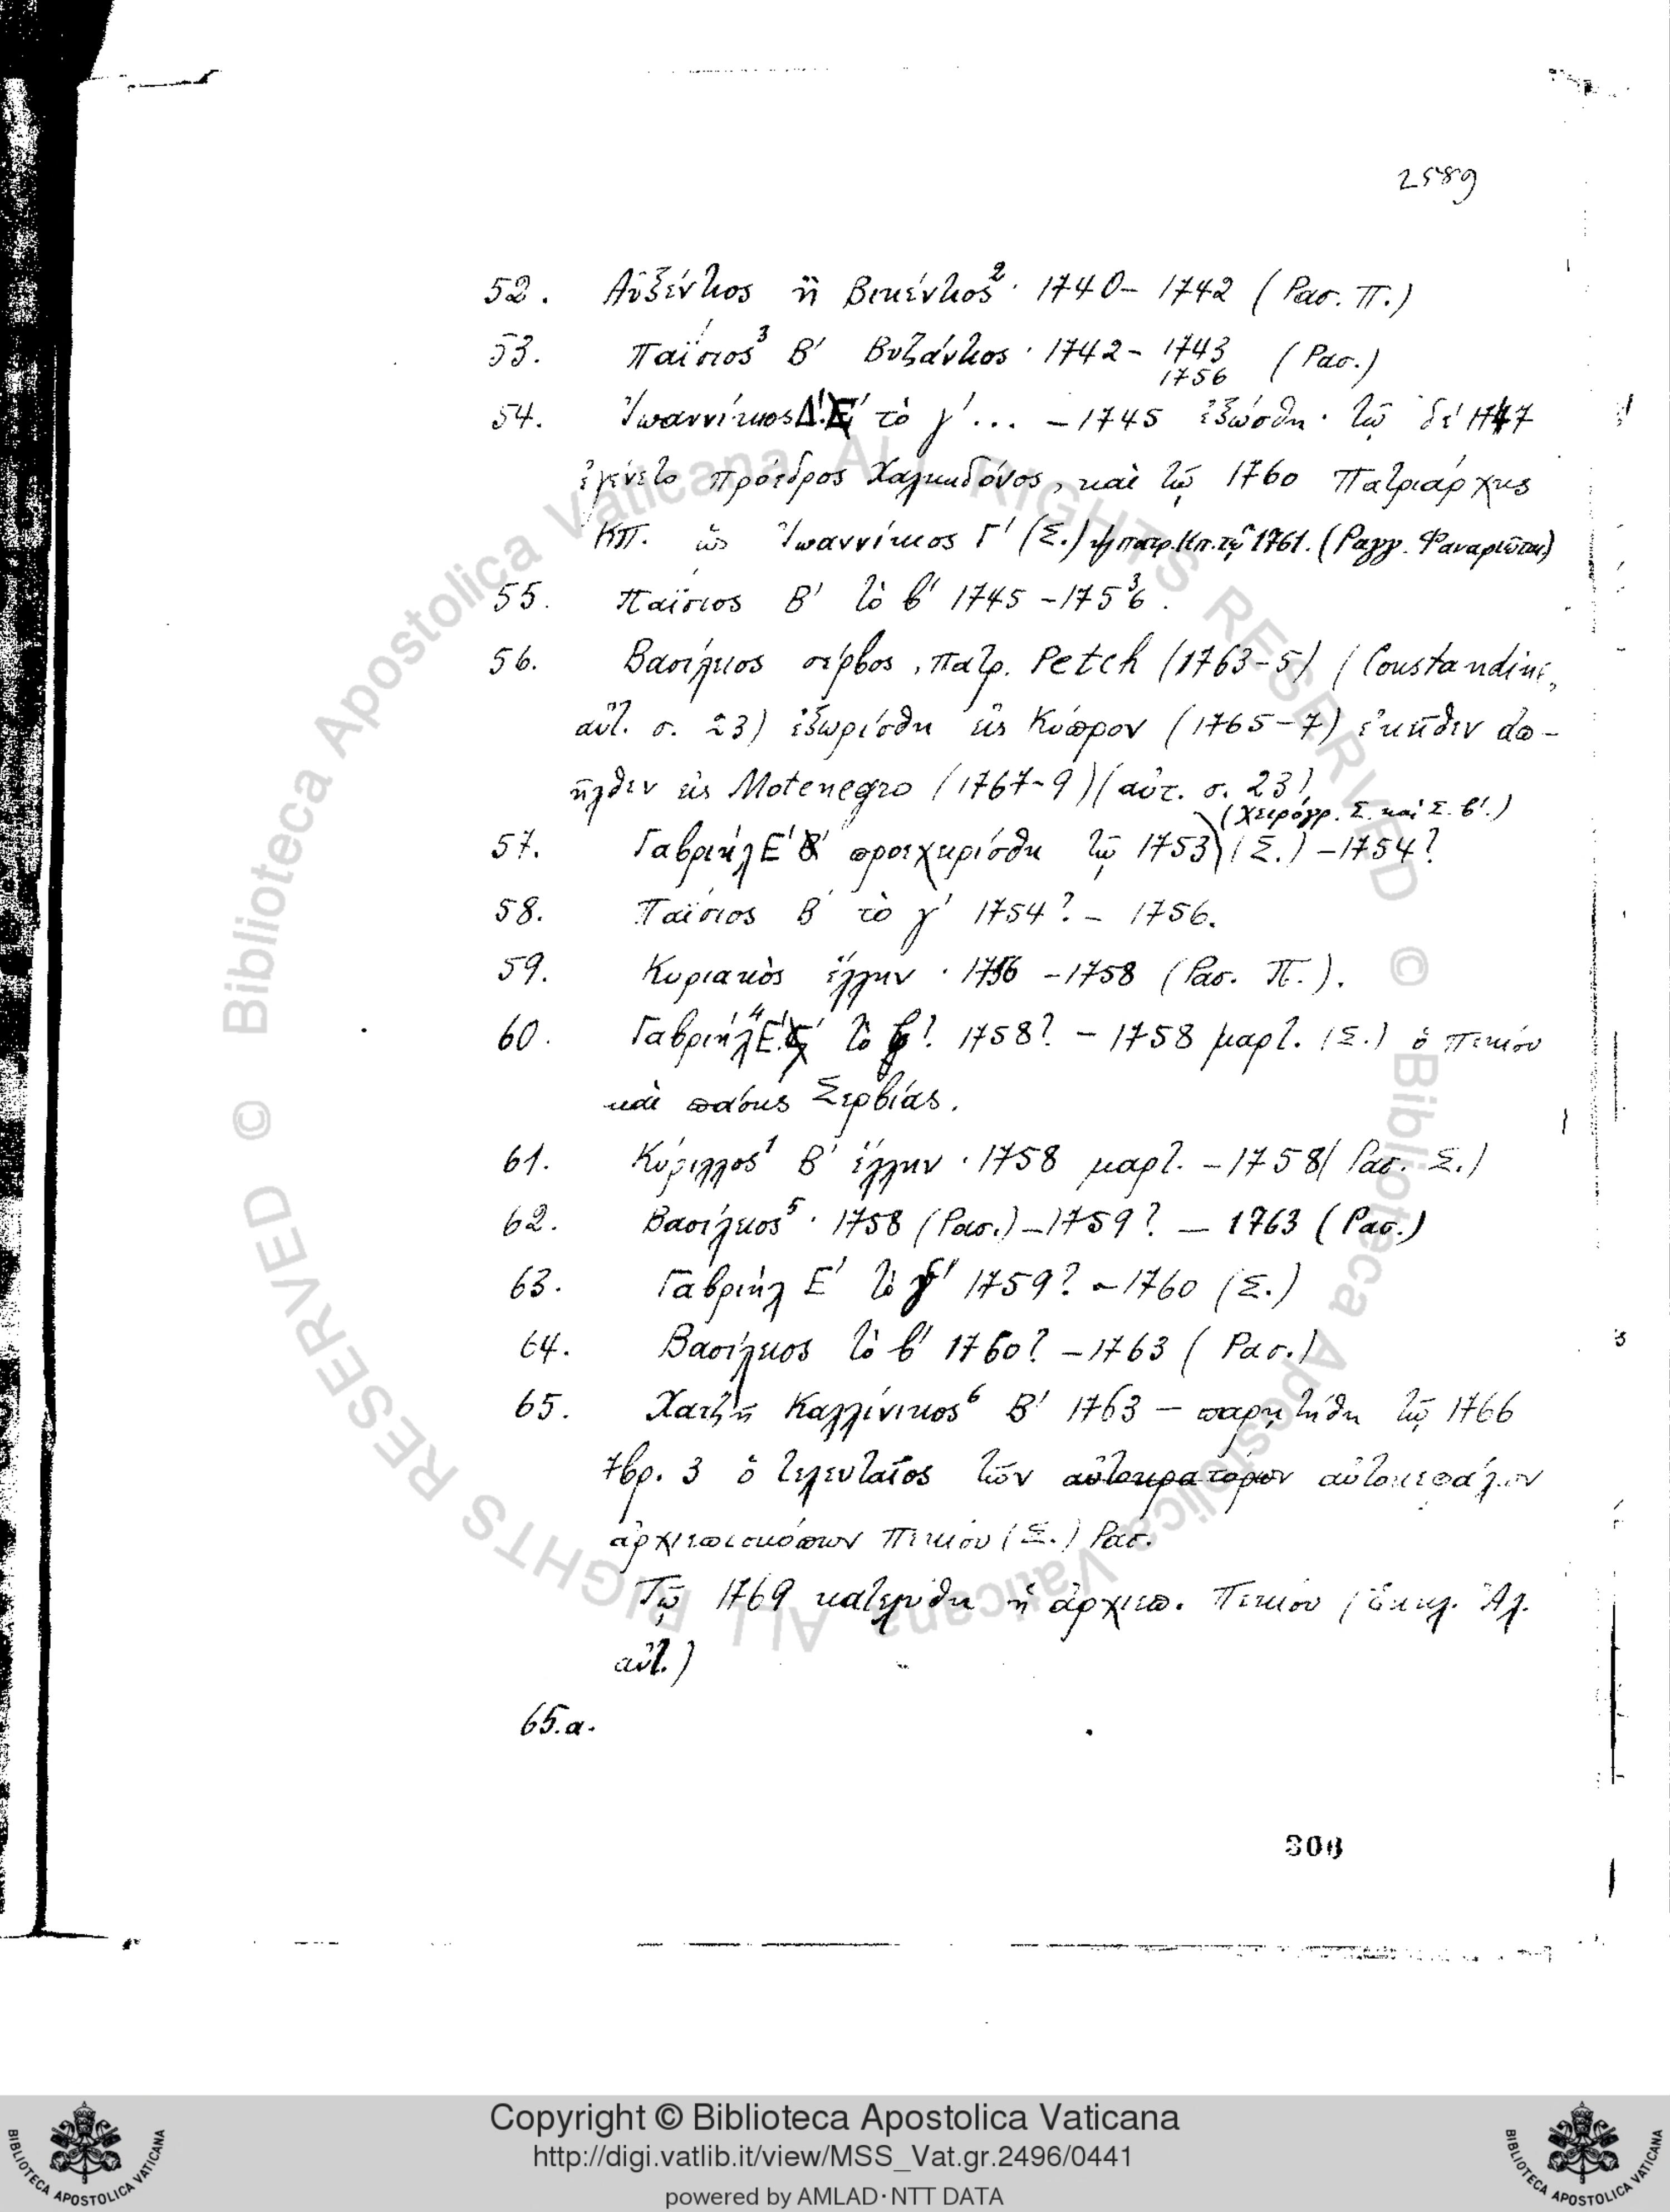 2589
52. Αὐξέντιος ἢ Βικέντιος² · 1740 – 1742 (Ρασ. Π.)
53. Παΐσιος³ Β′ Βυζάντιος · 1742 – 1743 (Ρασ.)
1756
54. Ἰωαννίκιος Δ′. τὸ γ′ ... – 1745 ἐξώσθη · τῷ δὲ 1747
ἐγένετο πρόεδρος Χαλκηδόνος, καὶ τῷ 1760 Πατριάρχης
ΚΠ. ὡς Ἰωαννίκιος Γ′ (Σ.) πατρ. Κπ. τῷ 1761. (Ραγγ. Φαναριῶται)
55. Παΐσιος Β′ τὸ β′ 1745 – 1756³.
56. Βασίλειος σέρβος, πατρ. Petch (1763–5) (Constandini,
αὐτ. σ. 23) ἐξωρίσθη εἰς Κύπρον (1765–7) ἐκεῖθεν ἀπ-
ῆλθεν εἰς Motenegro (1767–9) (αὐτ. σ. 23)
(χειρόγρ. Σ. καὶ Σ. β′.)
57. Γαβριὴλ Ε′ προεχειρίσθη τῷ 1753 (Σ.) – 1754?
58. Παΐσιος Β′ τὸ γ′ 1754? – 1756.
59. Κυριακὸς ἕλλην · 1756 – 1758 (Ρασ. Π.).
60. Γαβριὴλ⁴ Ε′. τὸ β′? 1758? – 1758 μαρτ. (Σ.) ὁ Πεκίου
καὶ πάσης Σερβίας.
61. Κύριλλος¹ Β′ ἕλλην · 1758 μαρτ. – 1758 (Ρασ. Σ.)
62. Βασίλειος⁵ · 1758 (Ρασ.) – 1759? – 1763 (Ρασ.)
63. Γαβριὴλ Ε′ τὸ γ′ 1759? – 1760 (Σ.)
64. Βασίλειος τὸ β′ 1760? – 1763 (Ρασ.)
65. Χατζῆ Καλλίνικος⁶ Β′ 1763 – παρῃτήθη τῷ 1766
7βρ. 3 ὁ τελευταῖος τῶν αὐτοκρατόρων αὐτοκεφάλων
ἀρχιεπισκόπων Πεκίου (Σ.) Ρασ.
Τῷ 1769 κατελύθη ἡ ἀρχιεπ. Πεκίου (Ἐκκλ. Ἀλ.
αὐτ.)
65.α.
306
© Biblioteca Apostolica Vaticana ALL RIGHTS RESERVED © Biblioteca Apostolica Vaticana ALL RIGHTS RESERVED
Copyright © Biblioteca Apostolica Vaticana
http://digi.vatlib.it/view/MSS_Vat.gr.2496/0441
powered by AMLAD·NTT DATA
BIBLIOTECA APOSTOLICA VATICANA
BIBLIOTECA APOSTOLICA VATICANA